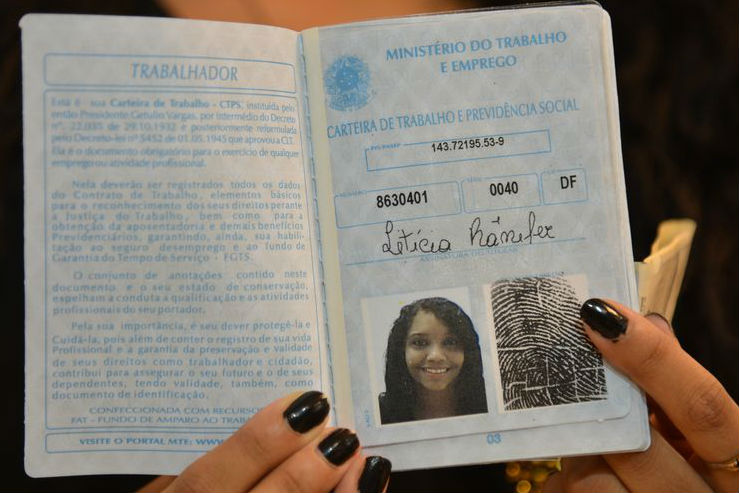 TRABALHADOR
Esta é sua Carteira de Trabalho - CTPS, instituída pelo
então Presidente Getulio Vargas, por intermédio do Decreto
nº. 22.035 de 29.10.1932 e posteriormente reformulada
pelo Decreto-lei nº 5452 de 01.05.1943 que aprovou a CLT.
Ela é o documento obrigatório para o exercício de qualquer
emprego ou atividade profissional.
Nela deverão ser registrados todos os dados
do Contrato de Trabalho, elementos básicos
para o reconhecimento dos seus direitos perante
a Justiça do Trabalho, bem como para a
obtenção da aposentadoria e demais benefícios
Previdenciários, garantindo, ainda, sua habili-
tação ao seguro desemprego e ao fundo de
Garantia do Tempo de Serviço - FGTS.
O conjunto de anotações contido neste
documento e o seu estado de conservação,
espelham a conduta a qualificação e as atividades
profissionais do seu portador.
Pela sua importância, é seu dever protegê-la e
Cuidá-la, pois além de conter o registro de sua vida
Profissional e a garantia da preservação e validade
de seus direitos como trabalhador e cidadão,
contribui para assegurar o seu futuro e o de seus
dependentes, tendo validade, também, como
documento de identificação.
CONFECCIONADA COM RECURSOS
FAT - FUNDO DE AMPARO AO TRAB
VISITE O PORTAL MTE: WWW
MINISTÉRIO DO TRABALHO
E EMPREGO
CARTEIRA DE TRABALHO E PREVIDÊNCIA SOCIAL
PIS/PASEP
143.72195.53-9
NÚMERO SÉRIE UF
8630401 0040 DF
Letícia Rânifer
ASSINATURA DO TITULAR
03